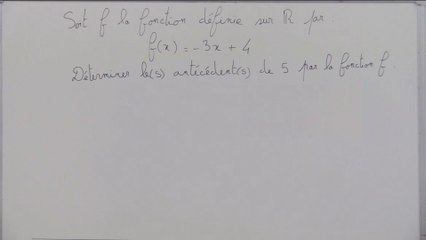 Soit f la fonction définie sur ℝ par :
f(x) = -3x + 4
Déterminer le(s) antécédent(s) de 5 par la fonction f.